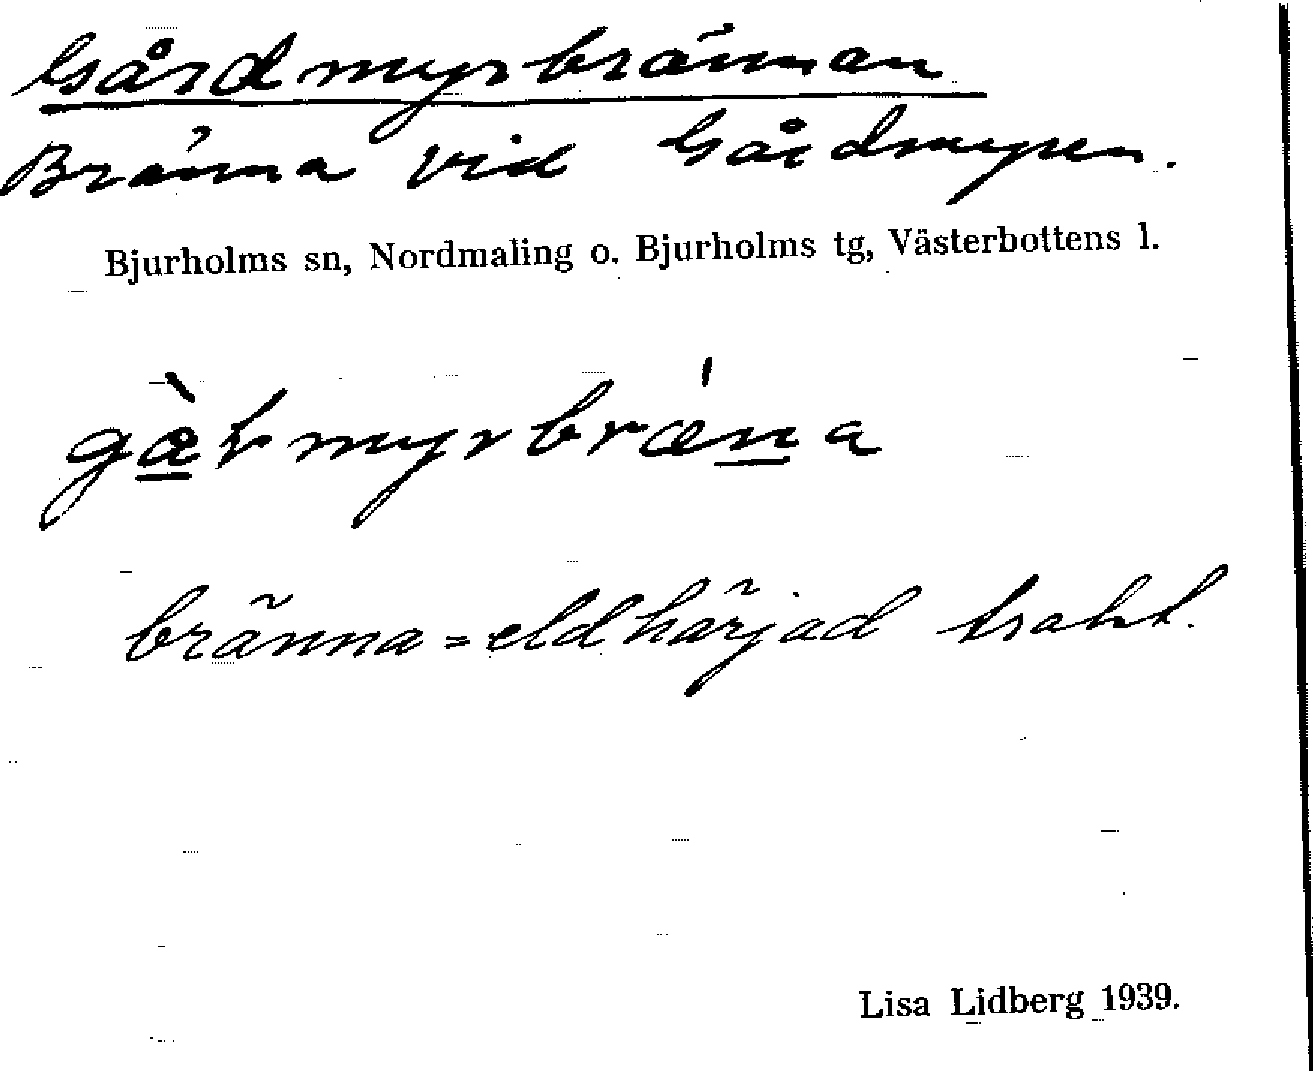 Gårdmyrbrännan
Bränna vid Gårdmyren.
Bjurholms sn, Nordmaling o. Bjurholms tg, Västerbottens l.
bränna = eldhärjad trakt.
Lisa Lidberg 1939.